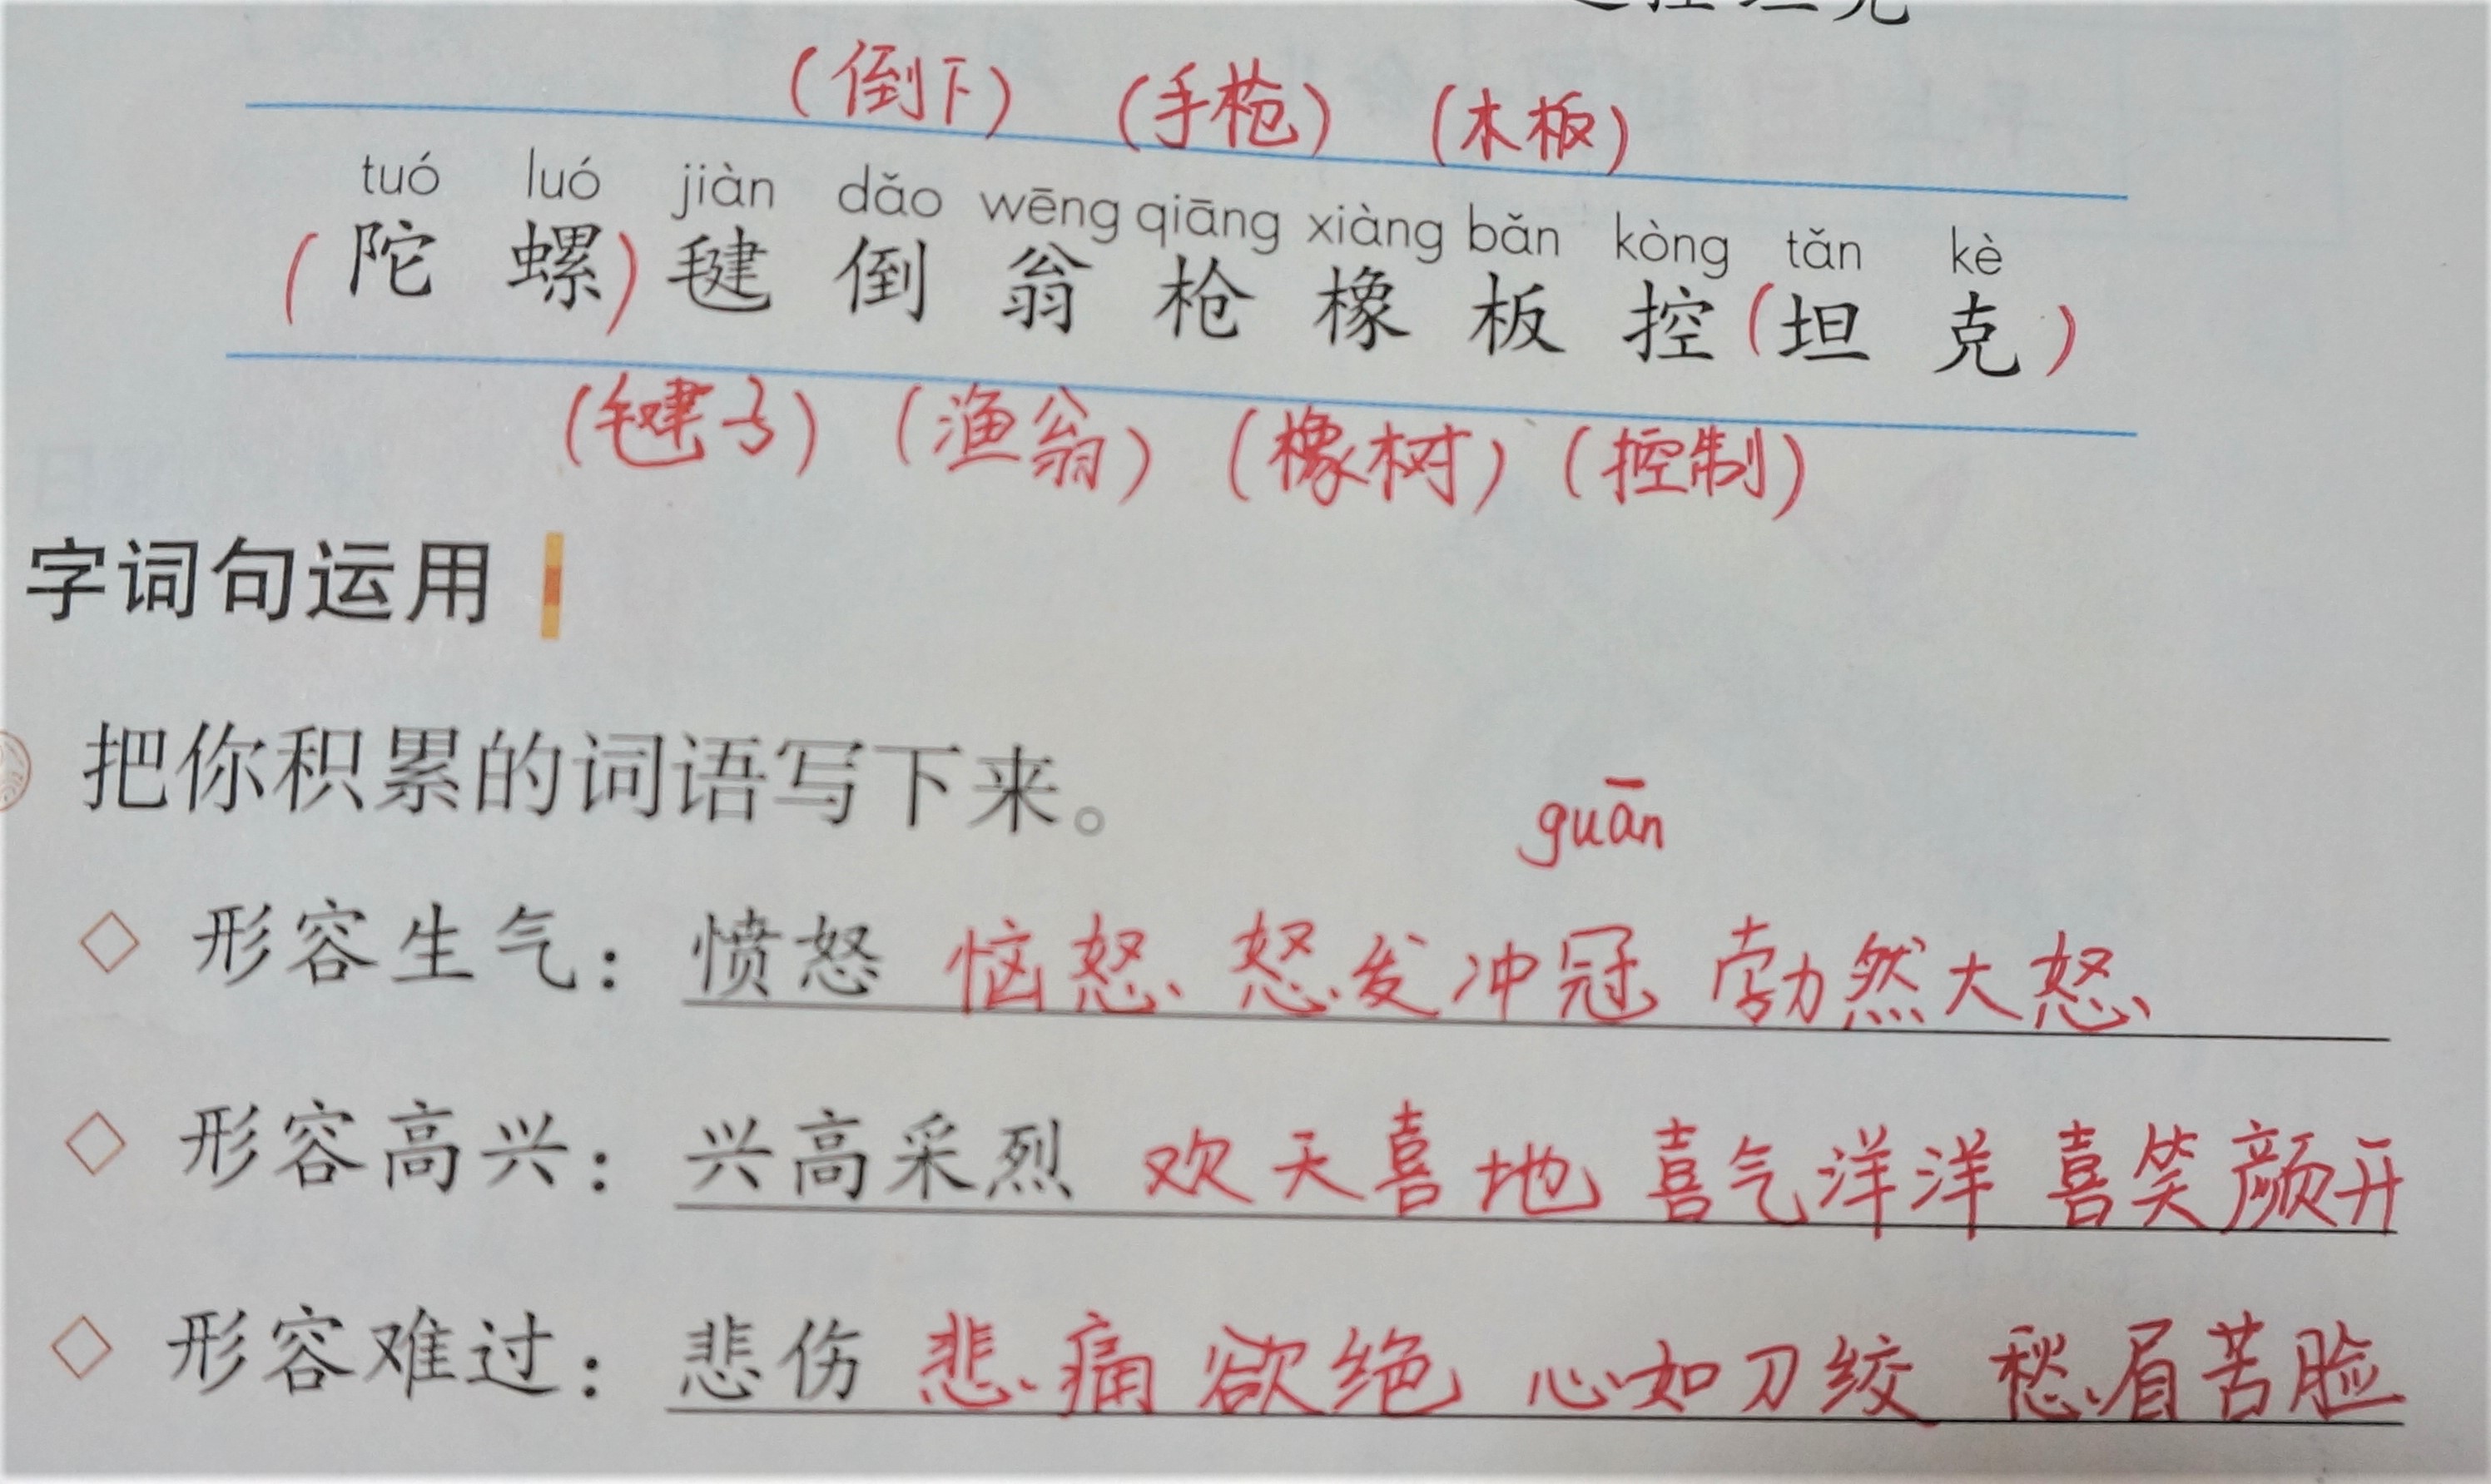 （倒下） （手枪） （木板）
tuó luó jiàn dǎo wēng qiāng xiàng bǎn kòng tǎn kè
（陀螺）毽倒翁枪橡板控（坦克）
（毽子）（渔翁）（橡树）（控制）
字词句运用
把你积累的词语写下来。
guān
◇ 形容生气：愤怒 恼怒 怒发冲冠 勃然大怒
◇ 形容高兴：兴高采烈 欢天喜地 喜气洋洋 喜笑颜开
◇ 形容难过：悲伤 悲痛欲绝 心如刀绞 愁眉苦脸